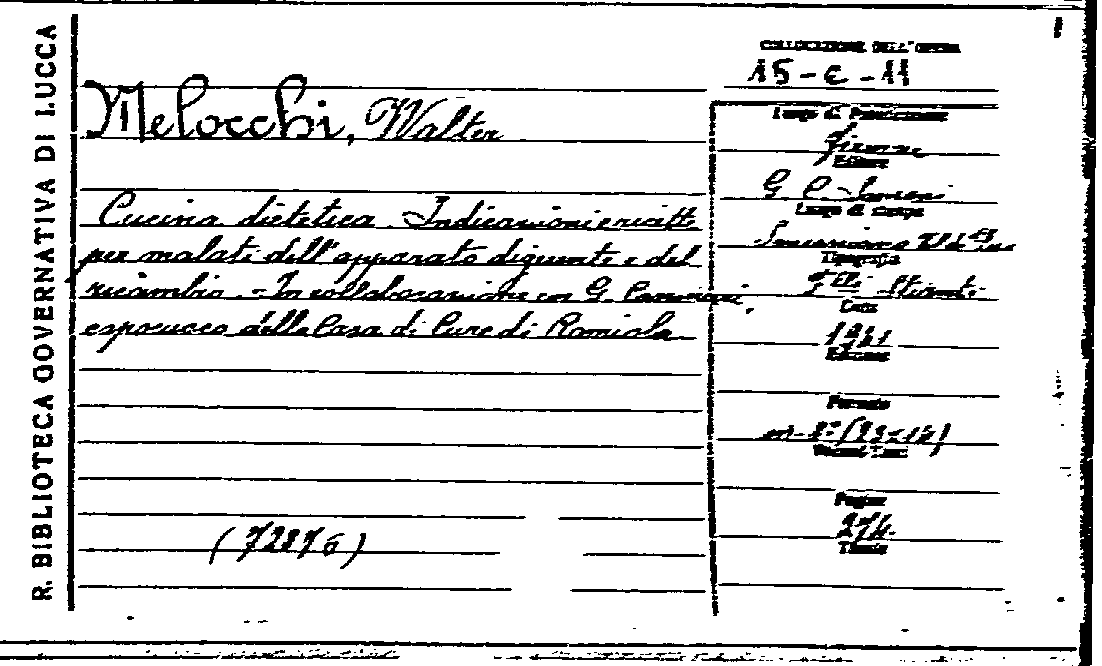 R. BIBLIOTECA GOVERNATIVA DI LUCCA
COLLOCAZIONE DELL'OPERA
15-C-11
Melocchi, Walter
Luogo di Pubblicazione
Firenze
Editore
G. C. Sansoni
Luogo di stampa
Cucina dietetica. Indicazioni e ricette
per malati dell'apparato digerente e del
ricambio. - In collaborazione con G.
capocuoco della Casa di Cure di
Tipografia
F.lli Stianti
Carta
Edizione
Formato
in-8°
Pagine
274.
Titolo
(72876)